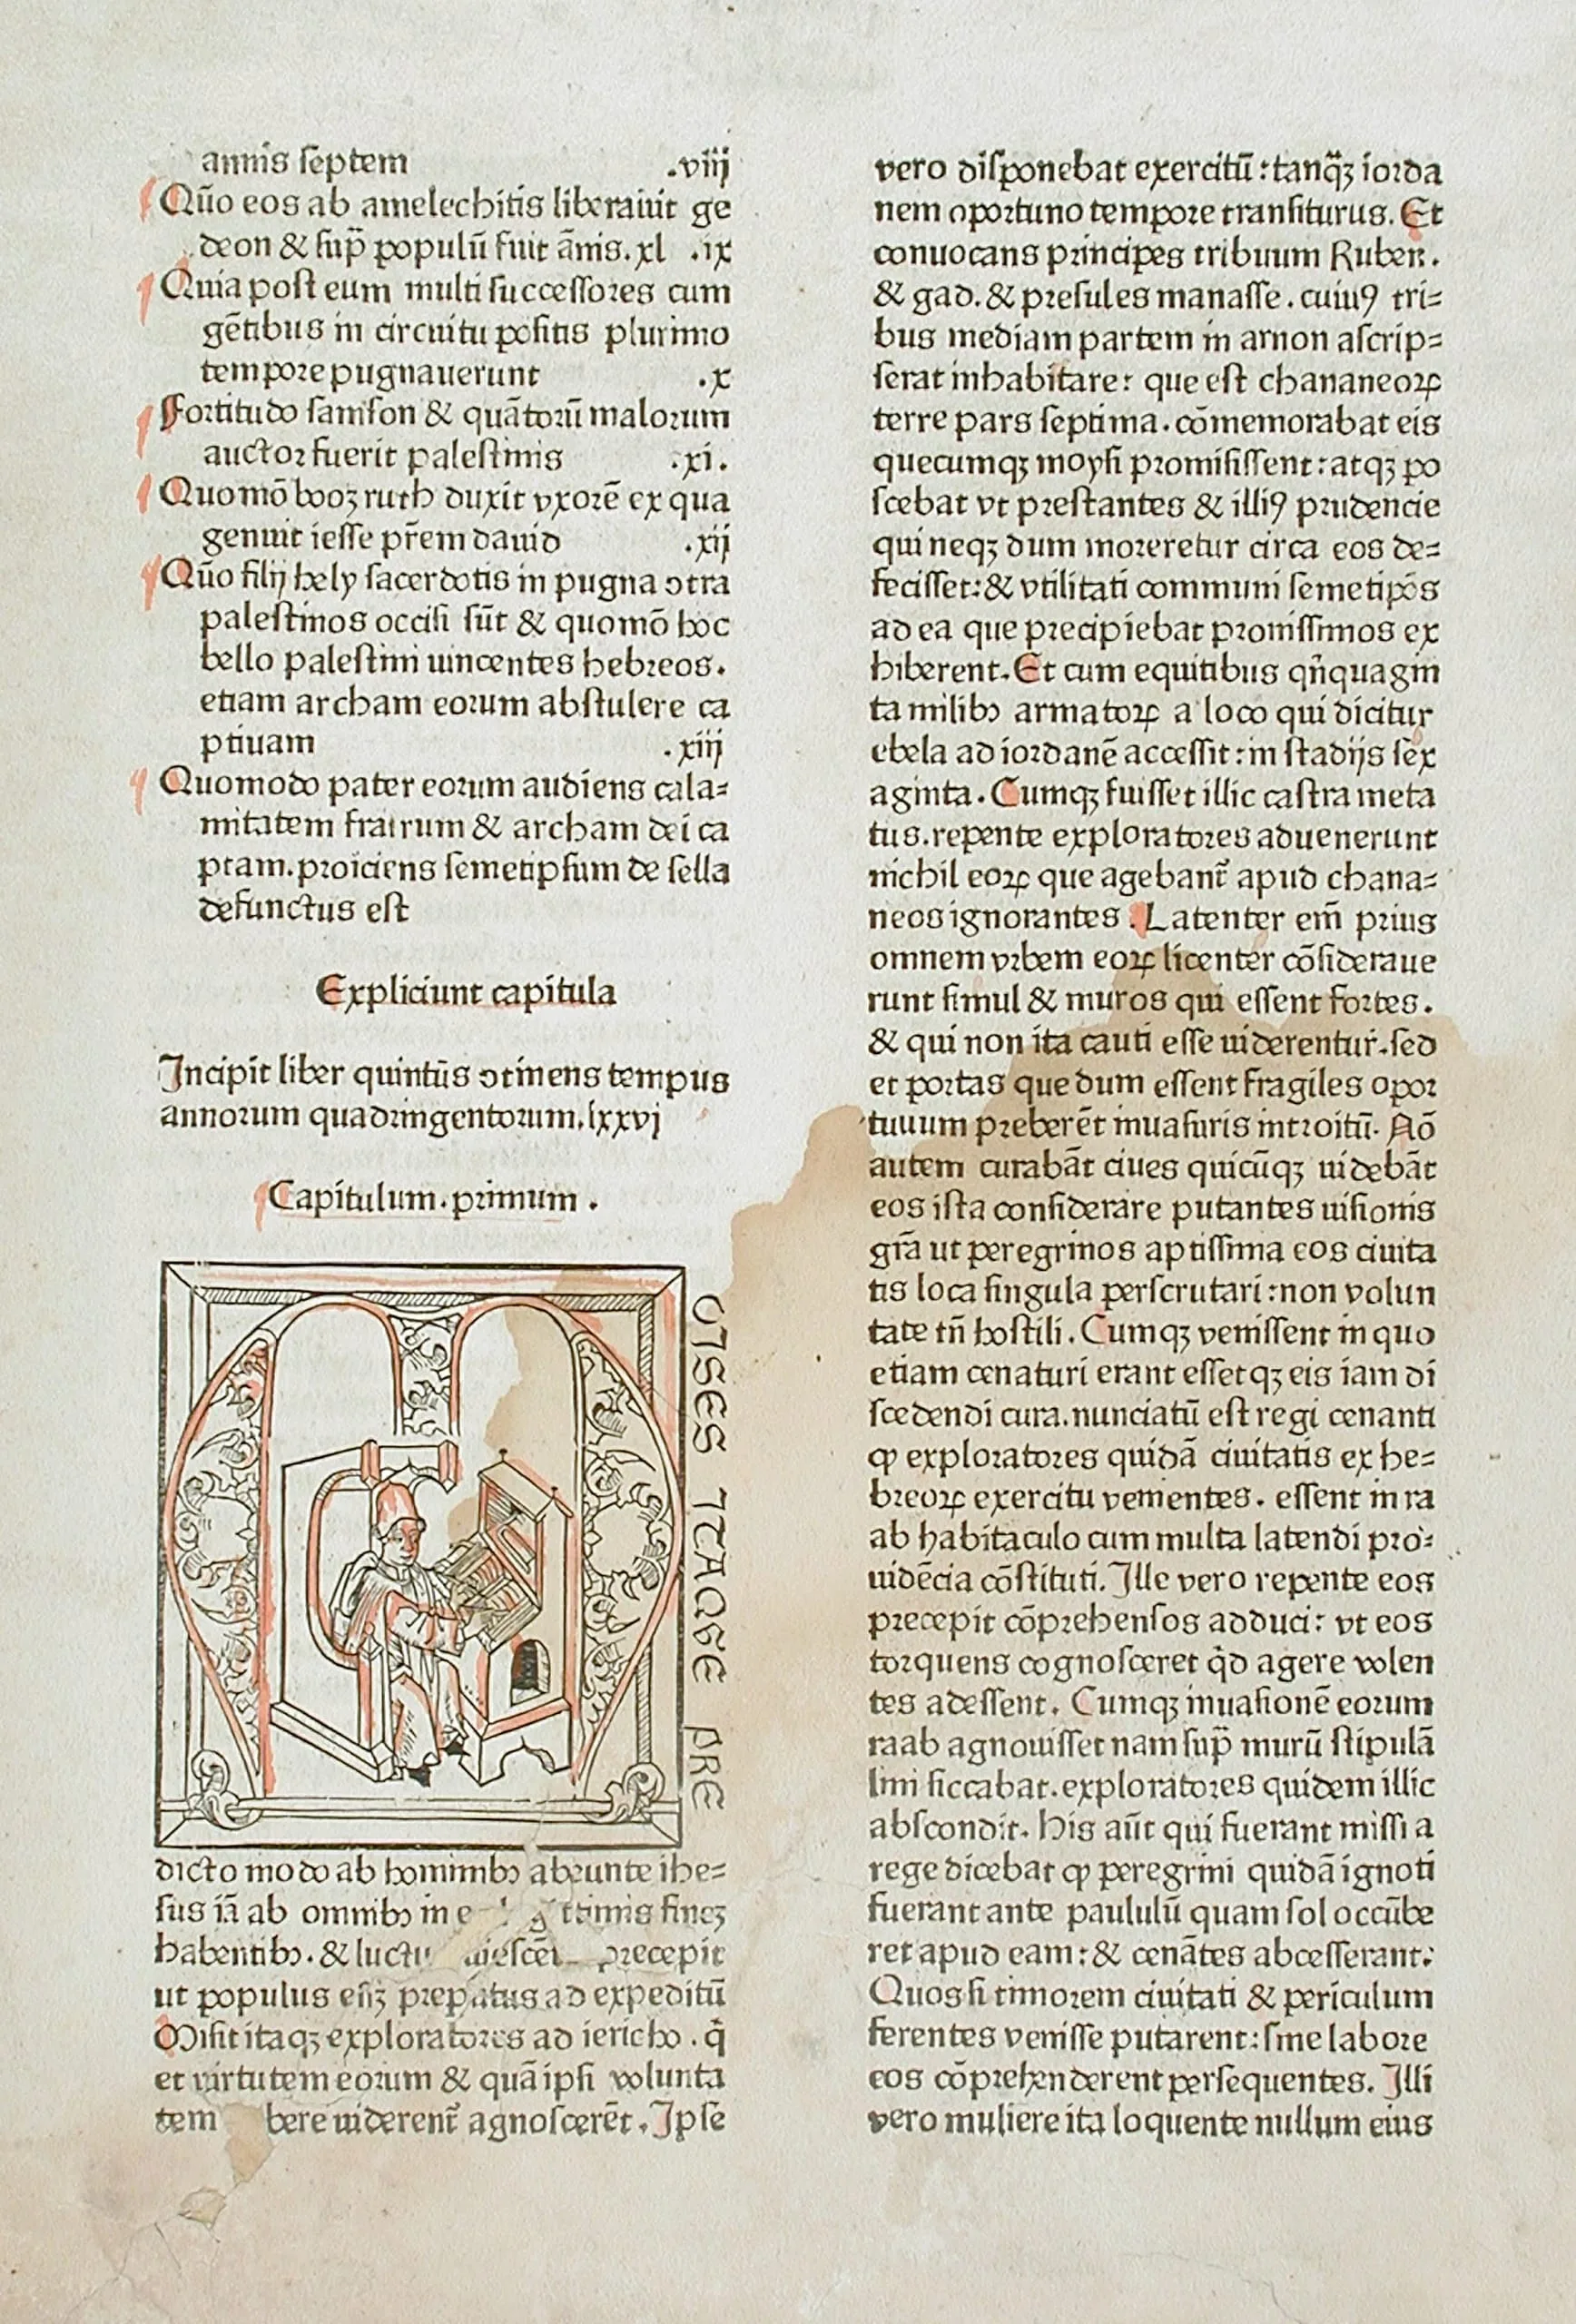 annis septem .viij
Qūo eos ab amelechitis liberauit ge
deon & suꝑ populū fuit āñis.xl .ix
Quia post eum multi successores cum
gētibus in circuitu positis plurimo
tempore pugnauerunt .x
Fortitudo samson & quātorū malorum
auctor fuerit palestinis .xi.
Quomō booz ruth duxit vxorē ex qua
genuit iesse pr̄em dauid .xij
Qūo filij hely sacerdotis in pugna ↄtra
palestinos occisi sūt & quomō hoc
bello palestini uincentes hebreos.
etiam archam eorum abstulere ca
ptiuam .xiij
Quomodo pater eorum audiens cala=
mitatem fratrum & archam dei ca
ptam.proiciens semetipsum de sella
defunctus est
Expliciunt capitula
Incipit liber quintūs ↄtinens tempus
annorum quadringentorum.lxxvj
Capitulum.primum.
OISES ITAQGE PRE
dicto modo ab hominibꝫ abeunte ihe=
sus iā ab omnibꝫ in fineꝫ
habentibꝫ.& precepit
ut populus eēꝫ preparatus ad expeditū
Misit itaqꝫ exploratores ad iericho.q̇
et virtutem eorum & quā ipsi volunta
tem uiderent̄ agnoscerēt.Ipse
vero disponebat exercitū:tanq̈ꝫ iorda
nem oportuno tempore transiturus.Et
conuocans principes tribuum Ruben.
& gad.& presules manasse.cuiuꝰ tri=
bus mediam partem in arnon ascrip=
serat inhabitare: que est chananeoꝝ
terre pars septima.cōmemorabat eis
quecumqꝫ moysi promisissent:atqꝫ po
scebat vt prestantes & illiꝰ prudencie
qui neqꝫ dum moreretur circa eos de=
fecisset:& vtilitati communi semetip̄os
ad ea que precipiebat promissimos ex
hiberent.Et cum equitibus qn̄quagin
ta milibꝫ armatoꝝ a loco qui dicitur
ebela ad iordanē accessit:in stadijs sex
aginta.Cumqꝫ fuisset illic castra meta
tus.repente exploratores aduenerunt
nichil eoꝝ que agebant̄ apud chana=
neos ignorantes.Latenter em̄ prius
omnem vrbem eoꝝ licenter cōsideraue
runt simul & muros qui essent fortes.
& qui non ita cauti esse uiderentur.sed
et portas que dum essent fragiles opor
tuuum preberēt inuasuris introitū.Nō
autem curabāt ciues quicūqꝫ uidebāt
eos ista considerare putantes uisionis
gr̄a ut peregrinos aptissima eos ciuita
tis loca singula perscrutari:non volun
tate tn̄ hostili.Cumqꝫ venissent in quo
etiam cenaturi erant essetqꝫ eis iam di
scedendi cura.nunciatū est regi cenanti
ꝙ exploratores quidā ciuitatis ex he=
breoꝝ exercitu venientes. essent in ra
ab habitaculo cum multa latendi pro=
uidēcia cōstituti.Ille vero repente eos
precepit cōprehensos adduci: vt eos
torquens cognosceret q̇d agere volen
tes adessent. Cumqꝫ inuasionē eorum
raab agnouisset nam suꝑ murū stipulā
lini siccabat.exploratores quidem illic
abscondit.his aūt qui fuerant missi a
rege dicebat ꝙ peregrini quidā ignoti
fuerant ante paululū quam sol occūbe
ret apud eam:& cenātes abcesserant:
Quos si timorem ciuitati & periculum
ferentes venisse putarent:sine labore
eos cōprehenderent persequentes. Illi
vero muliere ita loquente nullum eius